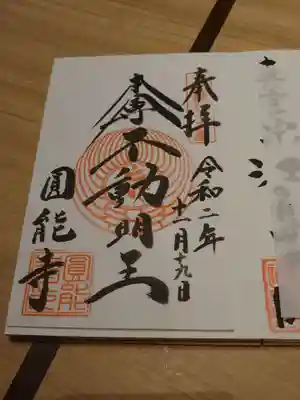 奉拝
令和二年
十一月十九日
不動明王
圓能寺
圓能寺